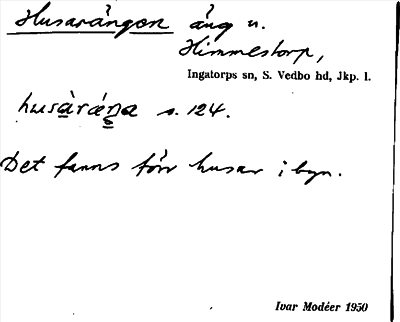 Husarängen äng u.
Himmelstorp,
Ingatorps sn, S. Vedbo hd, Jkp. l.
s. 124.
Det fanns förr husar i byn.
Ivar Modéer 1950